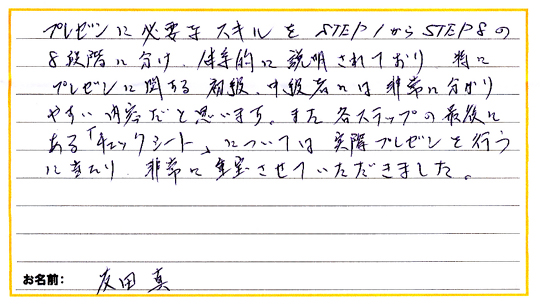 プレゼンに必要なスキルを STEP1からSTEP8の
8段階に分け、体系的に説明されており、特に
プレゼンに関する初級、中級者には非常に分かり
やすい内容だと思います。また各ステップの最後に
ある「チェックシート」については実際プレゼンを行う
に当たり、非常に重宝させていただきました。
お名前: 友田 真